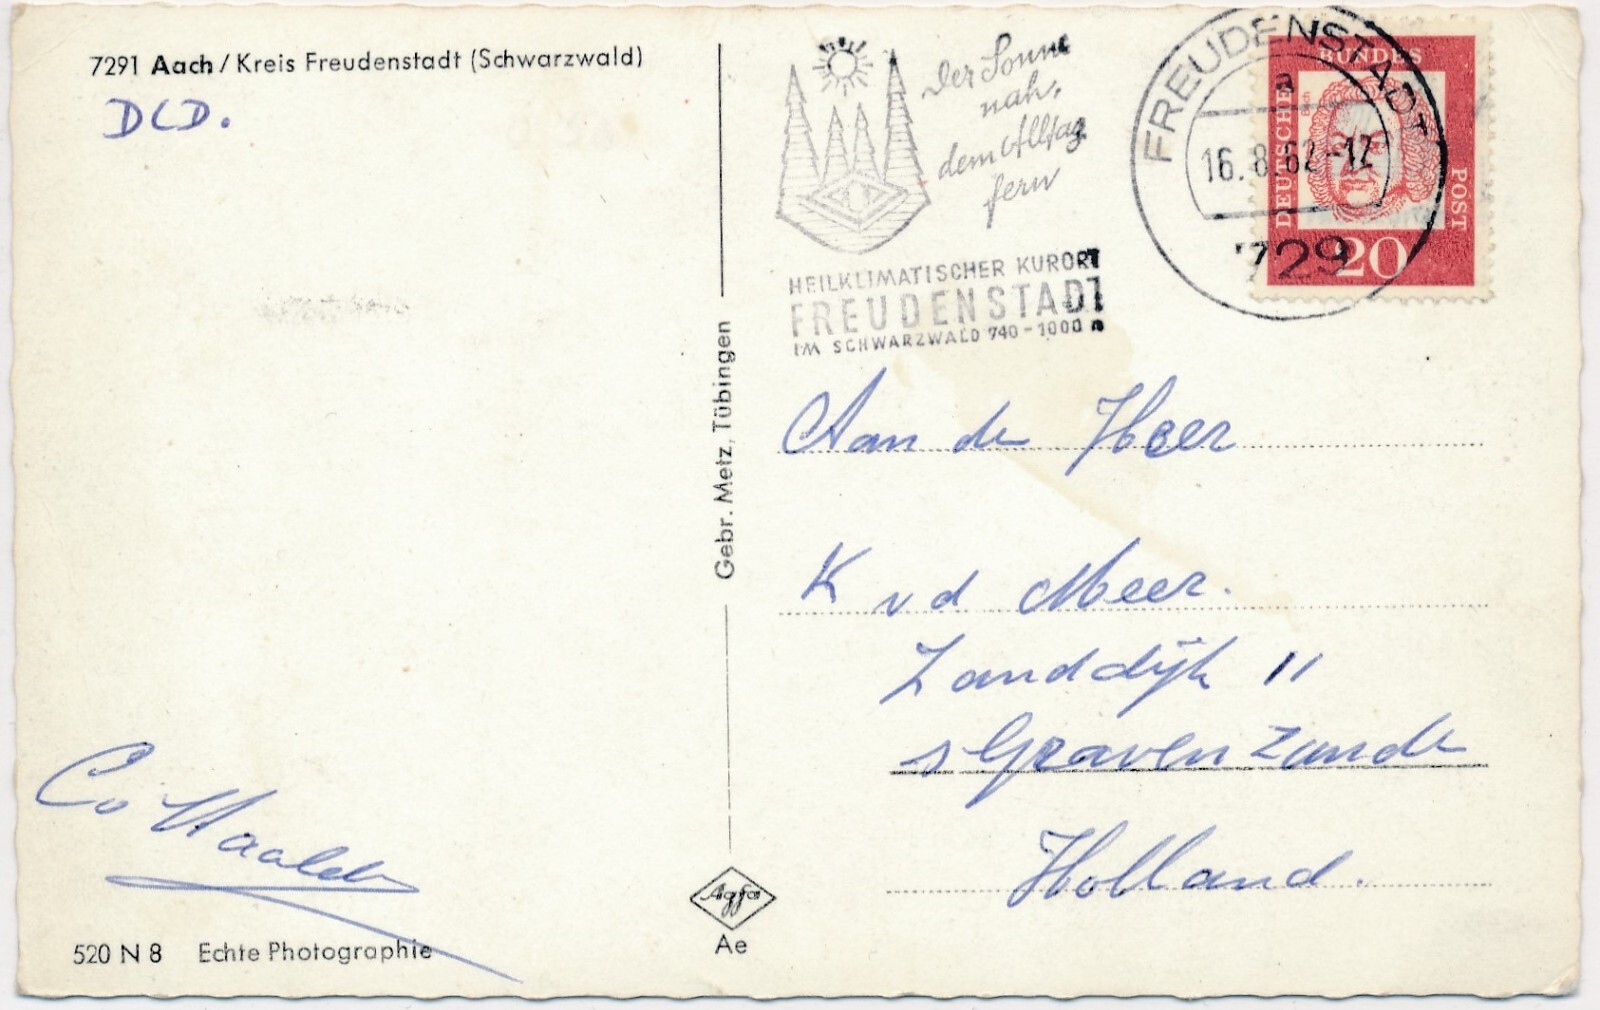 7291 Aach / Kreis Freudenstadt (Schwarzwald)
DLD.
Co
520 N 8 Echte Photographie
Gebr. Metz, Tübingen
Agfa
Ae
Der Sonne
nah,
dem Alltag
fern
HEILKLIMATISCHER KURORT
FREUDENSTADT
IM SCHWARZWALD 740-1000 m
FREUDENSTADT
a
16.8.62-12
729
DEUTSCHE
BUNDES
POST
Bach
20
Aan de Heer
K vd Meer.
Zanddijk 11
s Gravenzande
Holland.